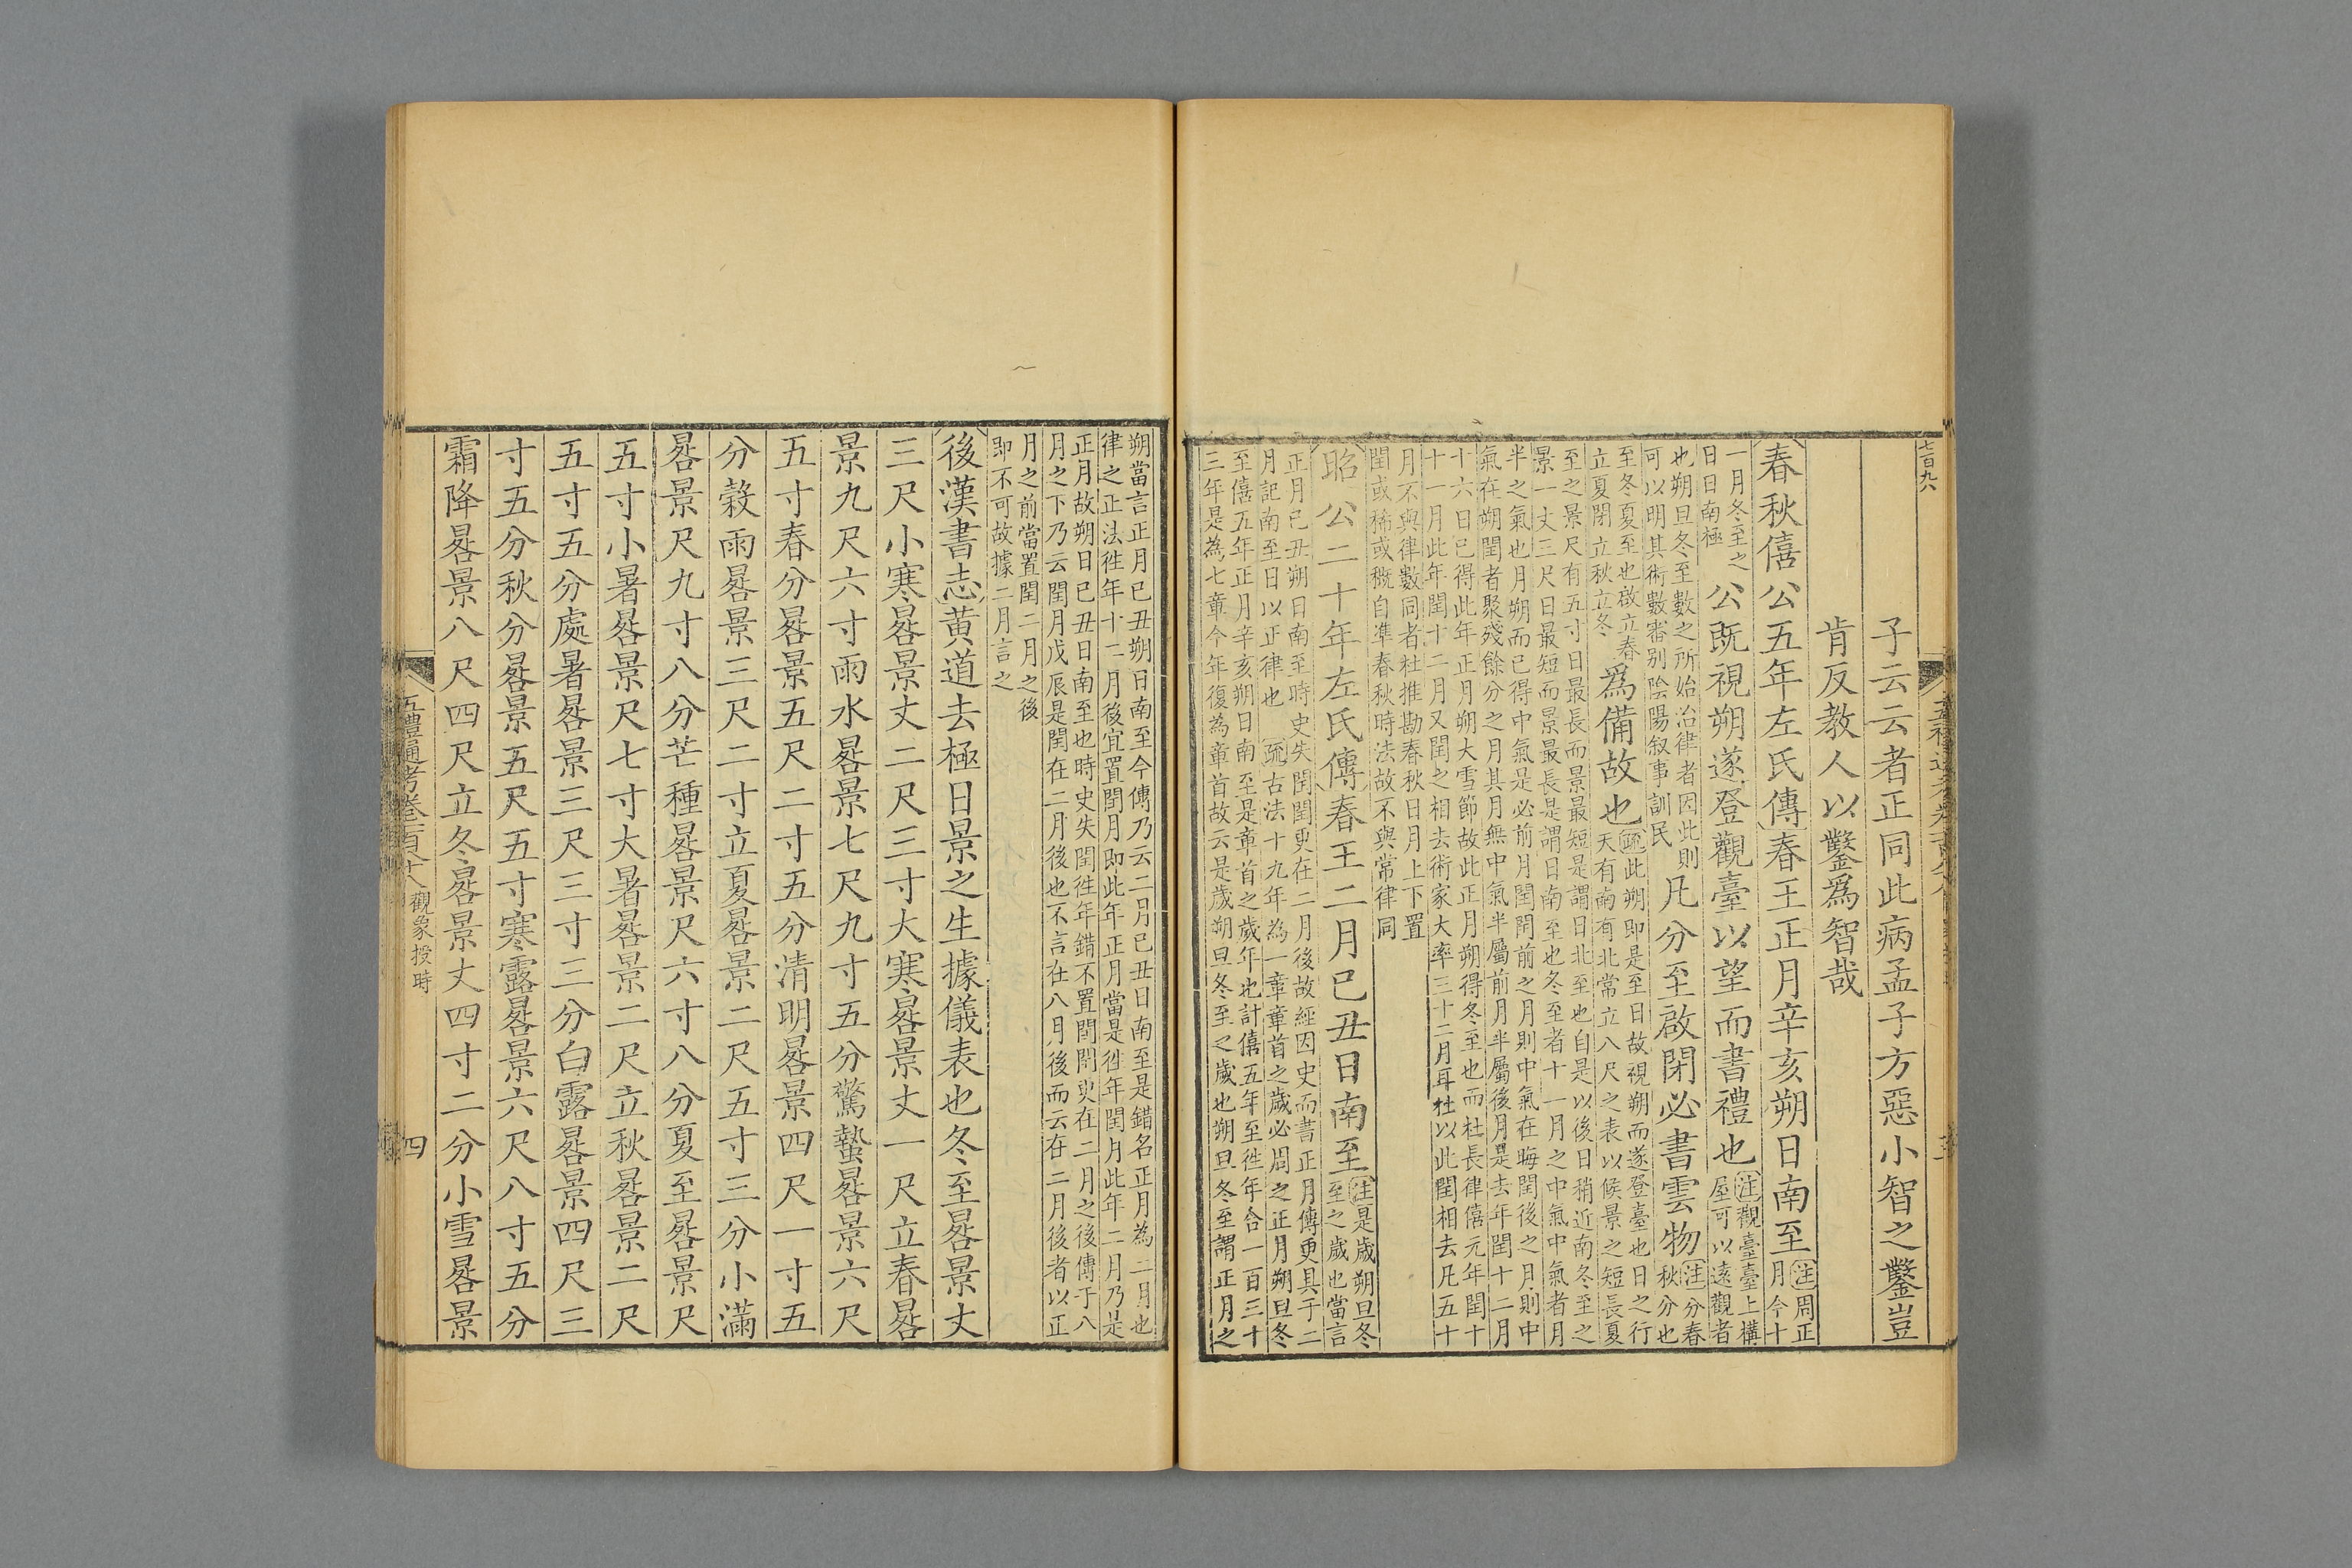 七百九六
子云云者正同此病孟子方惡小智之鑿豈
肯反教人以鑿爲智哉
春秋僖公五年左氏傳春王正月辛亥朔日南至注周正月今十
一月冬至之日日南極公既視朔遂登觀臺以望而書禮也注觀臺臺上構屋可以遠觀者
也朔旦冬至數之所始治律者因此則可以明其術數審别陰陽叙事訓民凡分至啟閉必書雲物注分春秋分也
至冬夏至也啟立春立夏閉立秋立冬爲備故也疏此朔即是至日故視朔而遂登臺也日之行天有南有北常立八尺之表以候景之短長夏
至之景尺有五寸日最長而景最短是謂日北至也自是以後日稍近南冬至之
景一丈三尺日最短而景最長是謂日南至也冬至者十一月之中氣中氣者月
半之氣也月朔而已得中氣是必前月閏閏前之月則中氣在晦閏後之月則中
氣在朔閏者聚殘餘分之月其月無中氣半屬前月半屬後月是去年閏十二月
十六日已得此年正月朔大雪節故此正月朔得冬至也而杜長律僖元年閏十
十一月此年閏十二月又閏之相去術家大率三十二月耳杜以此閏相去凡五十
月不與律數同者杜推勘春秋日月上下置
閏或稀或概自凖春秋時法故不與常律同
昭公二十年左氏傳春王二月已丑日南至注是歲朔旦冬至之歲也當言
正月已丑朔日南至時史失閏閏更在二月後故經因史而書正月傳更具于二
月記南至日以正律也疏古法十九年為一章章首之歲必周之正月朔旦冬
至僖五年正月辛亥朔日南至是章首之歲年也計僖五年至徃年合一百三十
三年是為七章今年復為章首故云是歲朔旦冬至之歲也朔旦冬至謂正月之
朔當言正月已丑朔日南至今傳乃云二月已丑日南至是錯名正月為二月也
律之正法徃年十二月後宜置閏月即此年正月當是徃年閏月此年二月乃是
正月故朔日已丑日南至也時史失閏徃年錯不置閏閏更在二月之後傳于八
月之下乃云閏月戊辰是閏在二月後也不言在八月後而云在二月後者以正
月之前當置閏二月之後
即不可故據二月言之
後漢書志黃道去極日景之生據儀表也冬至晷景丈
三尺小寒晷景丈二尺三寸大寒晷景丈一尺立春晷
景九尺六寸雨水晷景七尺九寸五分驚蟄晷景六尺
五寸春分晷景五尺二寸五分清明晷景四尺一寸五
分穀雨晷景三尺二寸立夏晷景二尺五寸三分小滿
晷景尺九寸八分芒種晷景尺六寸八分夏至晷景尺
五寸小暑晷景尺七寸大暑晷景二尺立秋晷景二尺
五寸五分處暑晷景三尺三寸三分白露晷景四尺三
寸五分秋分晷景五尺五寸寒露晷景六尺八寸五分
霜降晷景八尺四尺立冬晷景丈四寸二分小雪晷景
五禮通考卷一百八十八 觀象授時 四